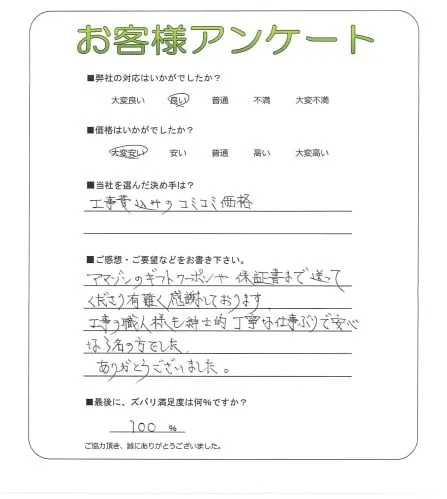 お客様アンケート
■弊社の対応はいかがでしたか？
大変良い 良い 普通 不満 大変不満
■価格はいかがでしたか？
大変安い 安い 普通 高い 大変高い
■当社を選んだ決め手は？
工事費込みのコミコミ価格
■ご感想・ご要望などをお書き下さい。
アマゾンのギフトクーポンや保証書まで送って
くださり有難く感謝しております
工事の職人様も紳士的丁寧な仕事ぶりで安心
な3名の方でした。
ありがとうございました。
■最後に、ズバリ満足度は何%ですか？
100 %
ご協力頂き、誠にありがとうございました。